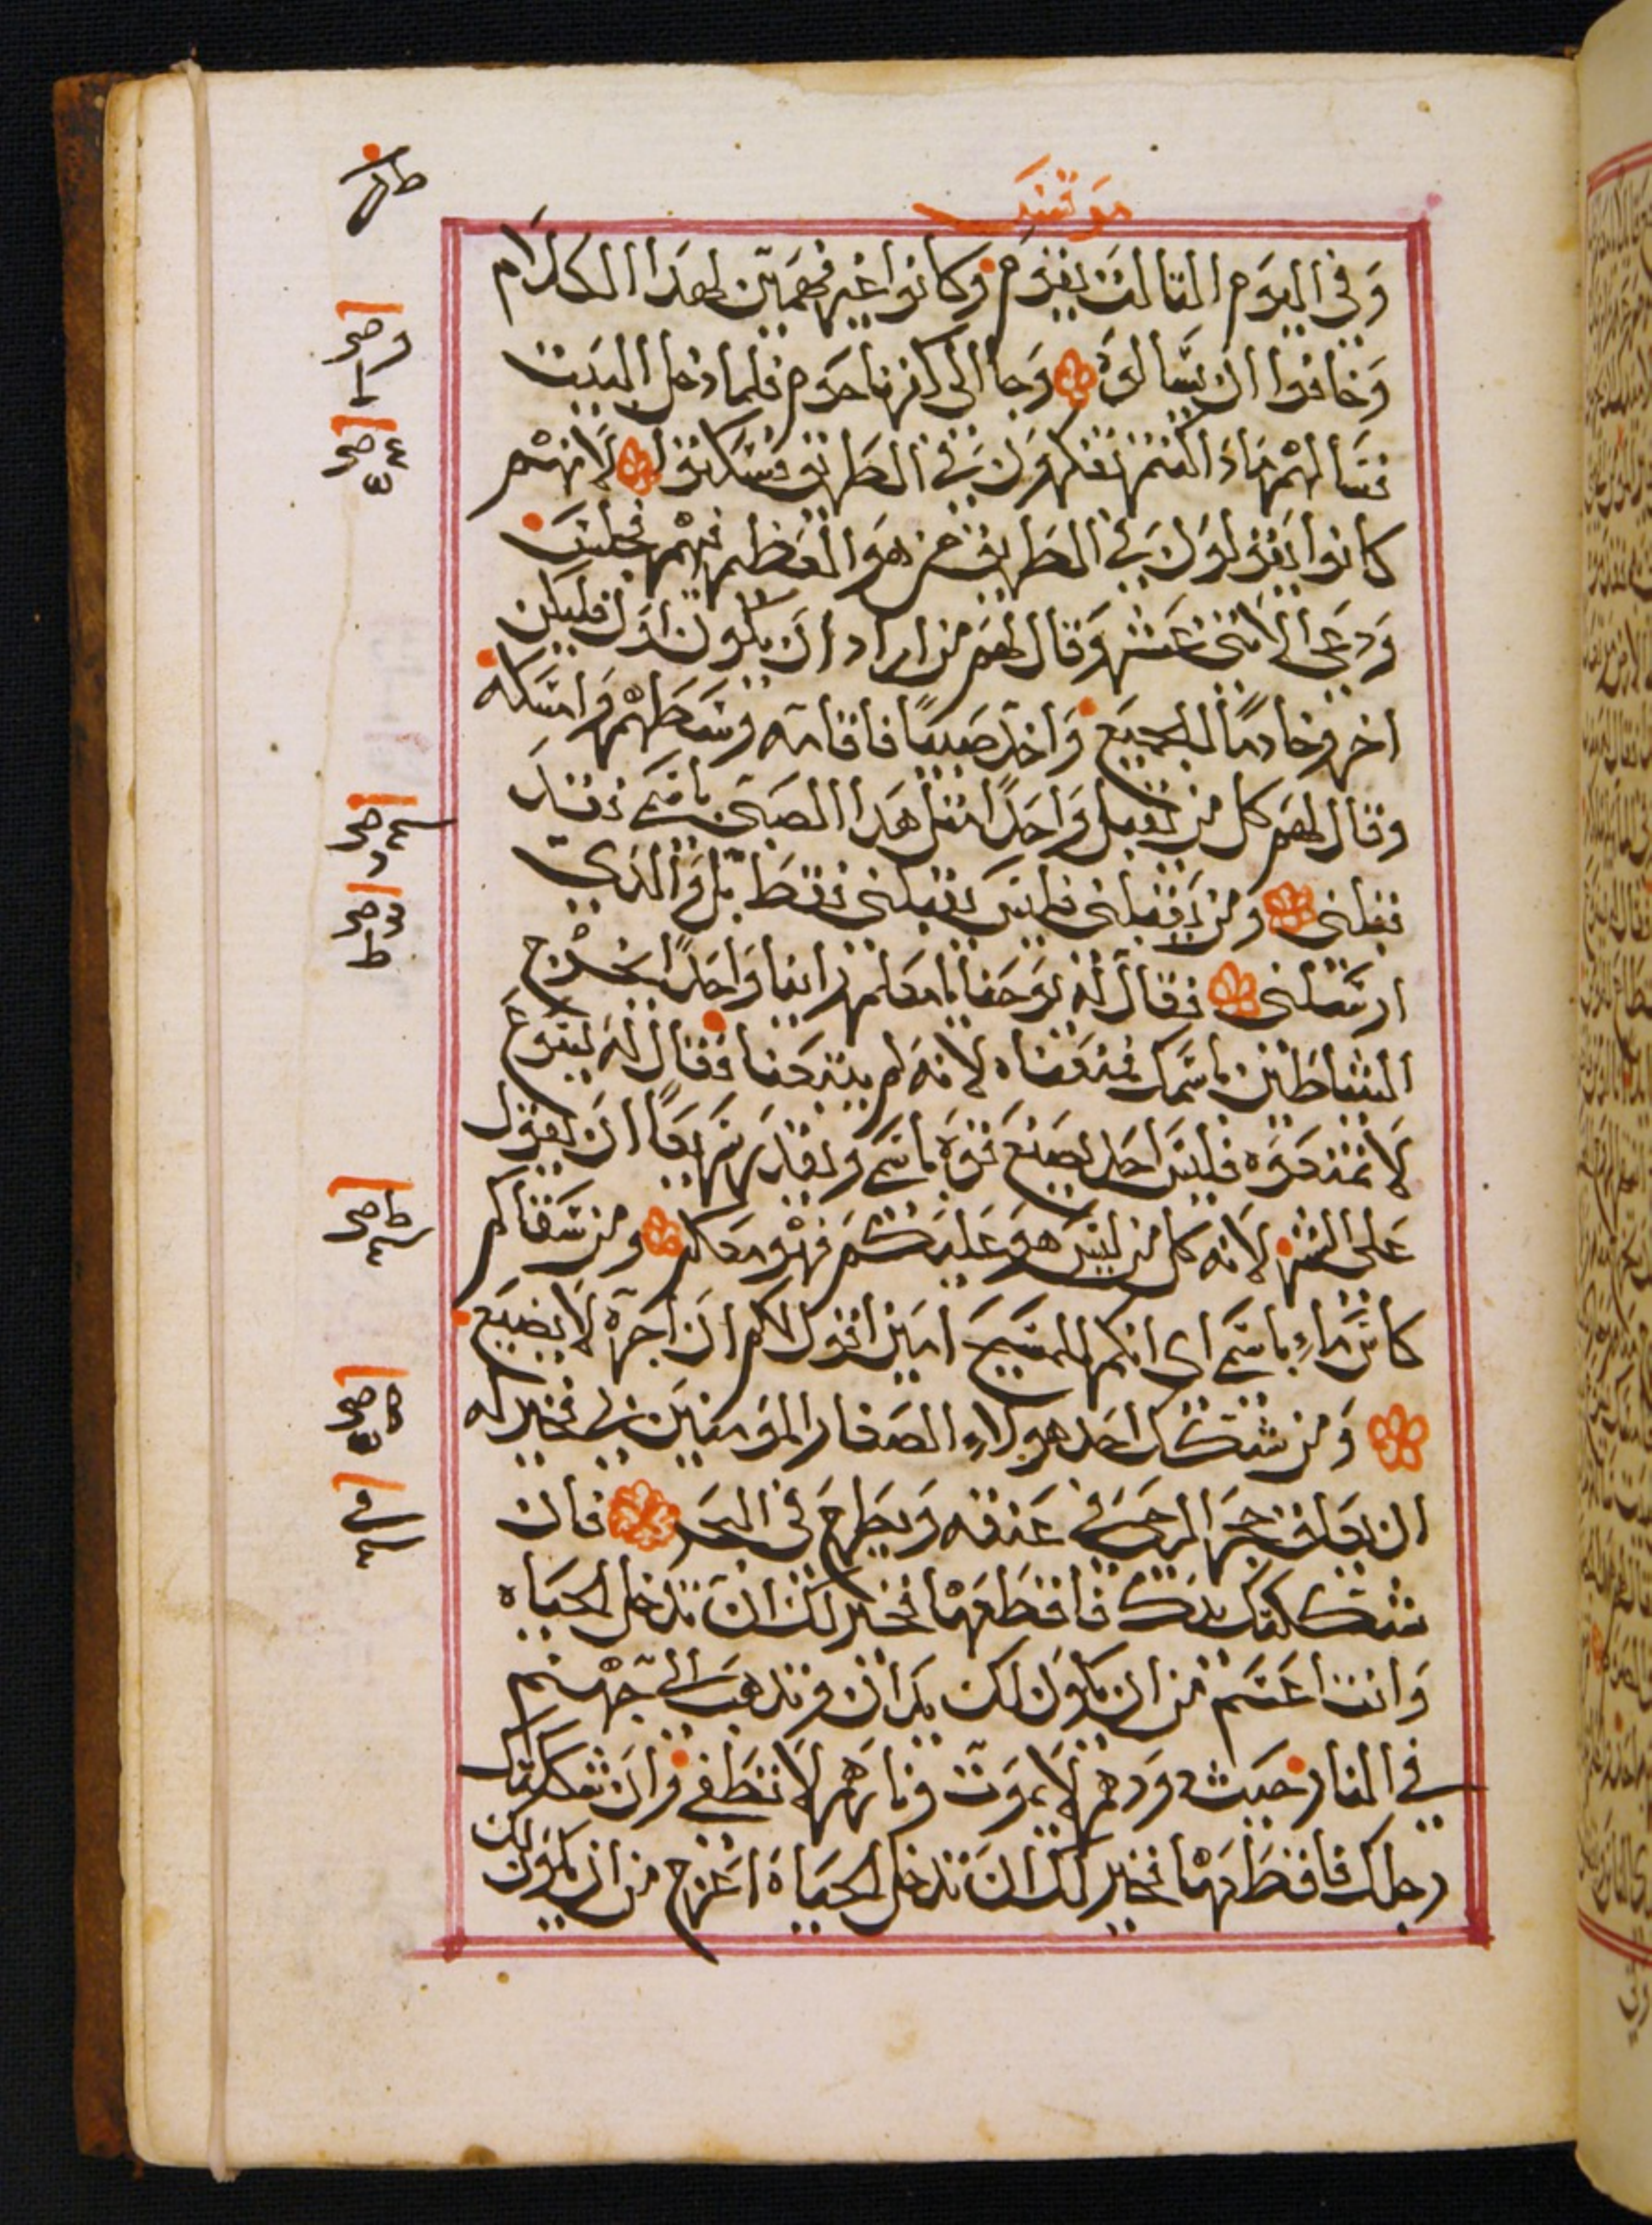 مرقس
وفي اليوم التالت يقوم وكانوا غير فهمين لهدا الكلام
وخافوا ان يسالوه وجا الى كفرناحوم فلما دخل البيت
فسالهم مادا كنتم تفكرون في الطريق فسكتوا لانهم
كانوا يقولون في الطريق من هو العظيم فيهم فجلس
ودعى الاثنى عشر وقال لهم من اراد ان يكون اول فليكن
اخر وخادمًا للجميع واخد صبيًا فاقامه وسطهم وامسكه
وقال لهم كل من يقبل واحدًا متل هدا الصبي باسمي فقد
قبلني ومن يقبلني فليس يقبلني فقط بل والدي
ارسلني فقال له يوحنا يامعلم راينا واحدًا يخرج
الشياطين باسمك فمنعناه لانه لم يتبعنا فقال له يسوع
لا تمنعوه فليس احد يصنع قوة باسمي ويقدر سريعًا ان يقول
على الشر لانه كل من ليس هو عليكم فهو معكم ومن سقاكم
كاس ماء باسمي اي انكم للمسيح امين اقول لكم ان اجره لا يضيع
ومن شكك احد هولاء الصغار المومنين بي فخير له
ان يعلق حجر الرحى في عنقه ويطرح في البحر فان
شككتك يدك فاقطعها فخير لك ان تدخل الحياه
وانت اعسم من ان يكون لك يدان وتدهب الى جهنم
في النار حيث دودهم لا يموت ونارهم لا تطفي وان شككتك
رجلك فاقطعها فخير لك ان تدخل الحياة اعرج من ان يكون لك